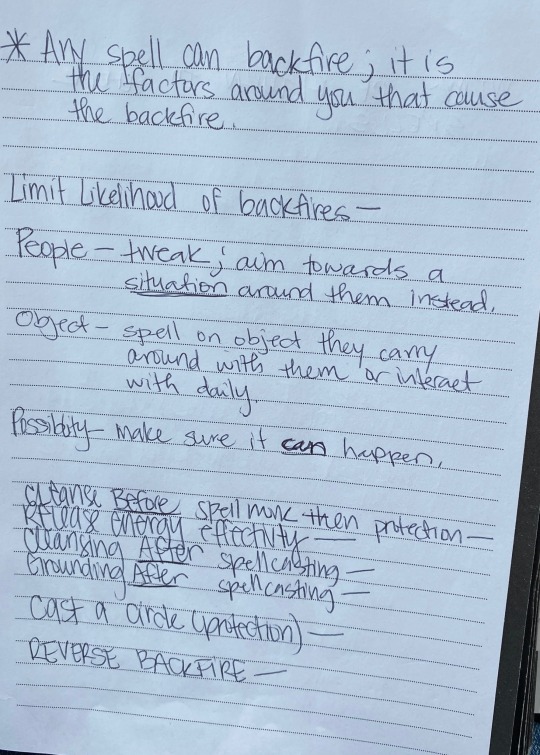 * Any spell can backfire; it is
the factors around you that cause
the backfire.
Limit Likelihood of backfires—
People – tweak; aim towards a
situation around them instead.
Object – spell on object they carry
around with them or interact
with daily.
Possibility – make sure it can happen.
Cleanse Before spell work then protection—
Release energy effectivity—
Cleansing After spellcasting—
Grounding After spellcasting—
Cast a circle (protection)—
REVERSE BACKFIRE—